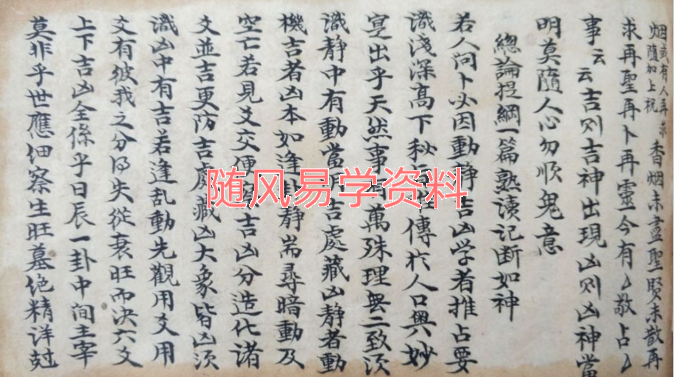 烟或有人再求
隨加上祝
香烟未盡聖賢未散再
求再聖再卜再靈今有厶敬占厶
事云云吉則吉神出現凶則凶神當
明莫隨人心勿順鬼意
總論提綱一篇熟讀記断如神
若人问卜必因動静吉凶学者推占要
識淺深高下秘傳於人口奥妙
寔出乎天然事萬殊理無二致須
識静中有動當吉處藏凶静者動
機吉者凶本如逢静耑尋暗動及
空亡若見爻交便吉凶分造化诸
爻並吉更防吉處藏凶大象皆凶須
識凶中有吉若逢乱動先觀用爻用
爻有彼我之分得失從衰旺而决六爻
上下吉凶全係乎日辰一卦中间主宰
莫非乎世應细察生旺墓绝精详尅
随风易学资料